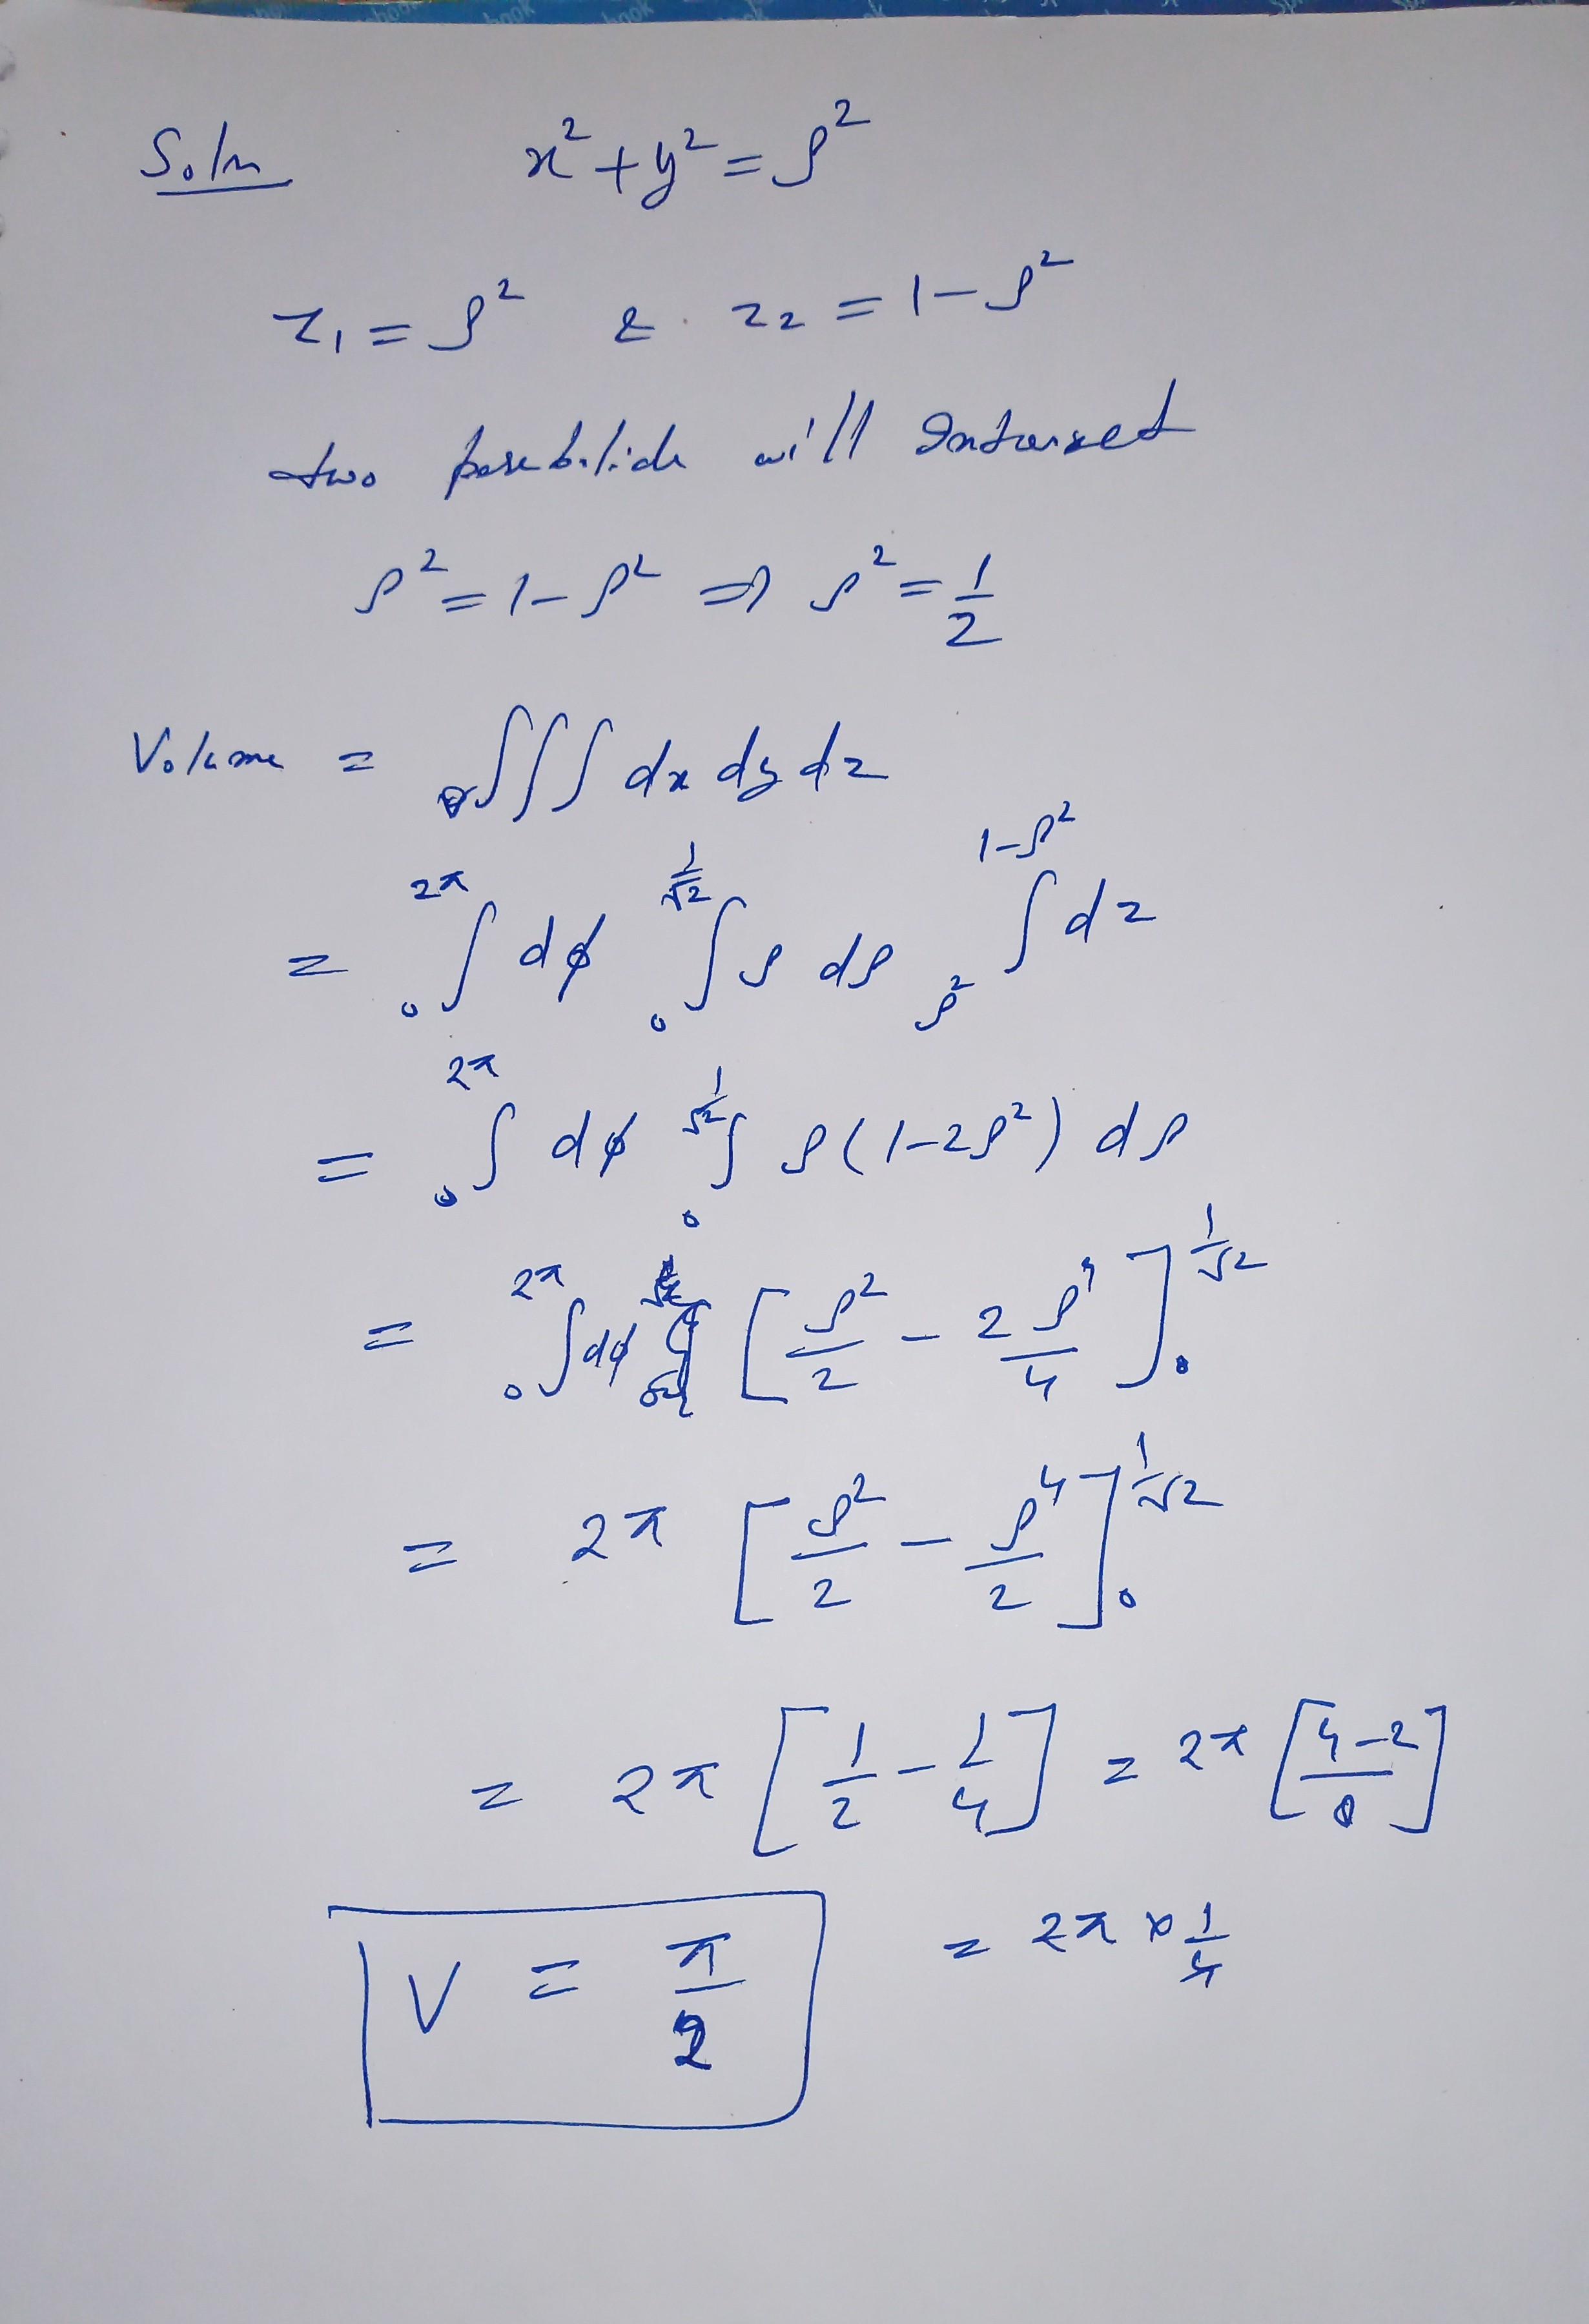 Soln x² + y² = ρ²
z₁ = ρ² & z₂ = 1 - ρ²
two will Intersect
ρ² = 1 - ρ² ⇒ ρ² = 1/2
Volume = ∫∫∫ dx dy dz
= ∫₀^{2π} dϕ ∫₀^{1/√2} ρ dρ ∫_{ρ²}^{1-ρ²} dz
= ∫₀^{2π} dϕ ∫₀^{1/√2} ρ(1-2ρ²) dρ
= ∫₀^{2π} dϕ [ρ²/2 - 2ρ⁴/4]₀^{1/√2}
= 2π [ρ²/2 - ρ⁴/2]₀^{1/√2}
= 2π [1/2 - 1/4] = 2π [(4-2)/8]
= 2π × 1/4
V = π/2